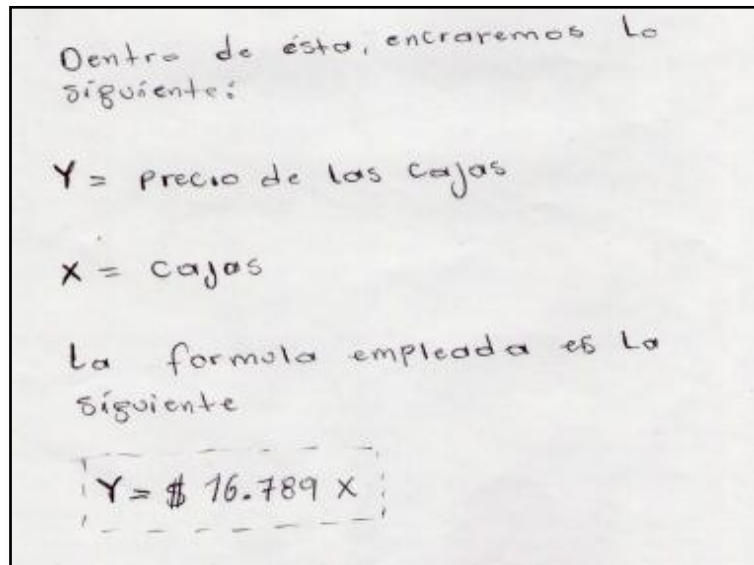 Dentro de ésta, encraremos lo
siguiente:
Y = precio de las cajas
X = cajas
La formula empleada es la
siguiente
Y = $ 16.789 X